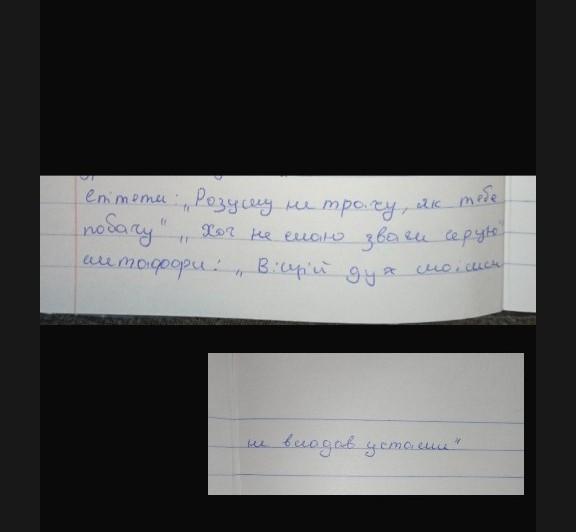 епітети: „Розуму не трачу, як тебе
побачу" „ Хоч не маю зваги серцю"
метафори: „ Віщій дух моїми
не владав устами"